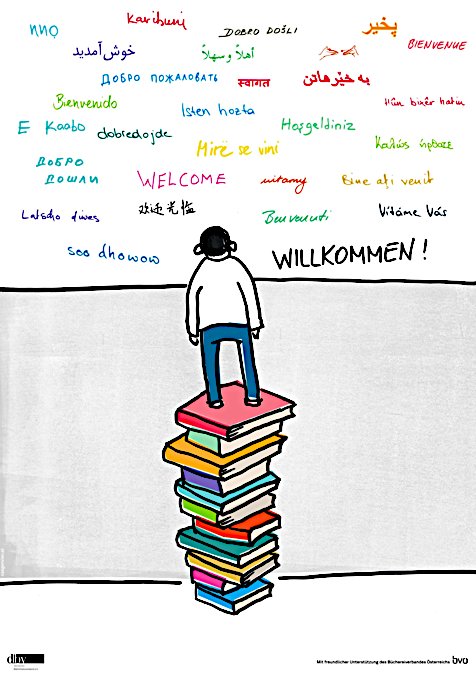 Karibuni
DOBRO DOŠLI
پخیر
BIENVENUE
خوش آمدید
أهلاً و سهلاً
ДОБРО ПОЖАЛОВАТЬ
स्वागत
به خێر هاتن
Bienvenido
Isten hozta
Hûn bixêr hatin
E Kaabo
dobrodojde
Mirë se vini
Hoşgeldiniz
ДОБРО
ДОШЛИ
WELCOME
witamy
Bine aţi venit
Latscho diwes
欢迎光临
Benvenuti
Vítáme Vás
soo dhowow
WILLKOMMEN!
Mit freundlicher Unterstützung des Büchereiverbandes Österreichs
bvö